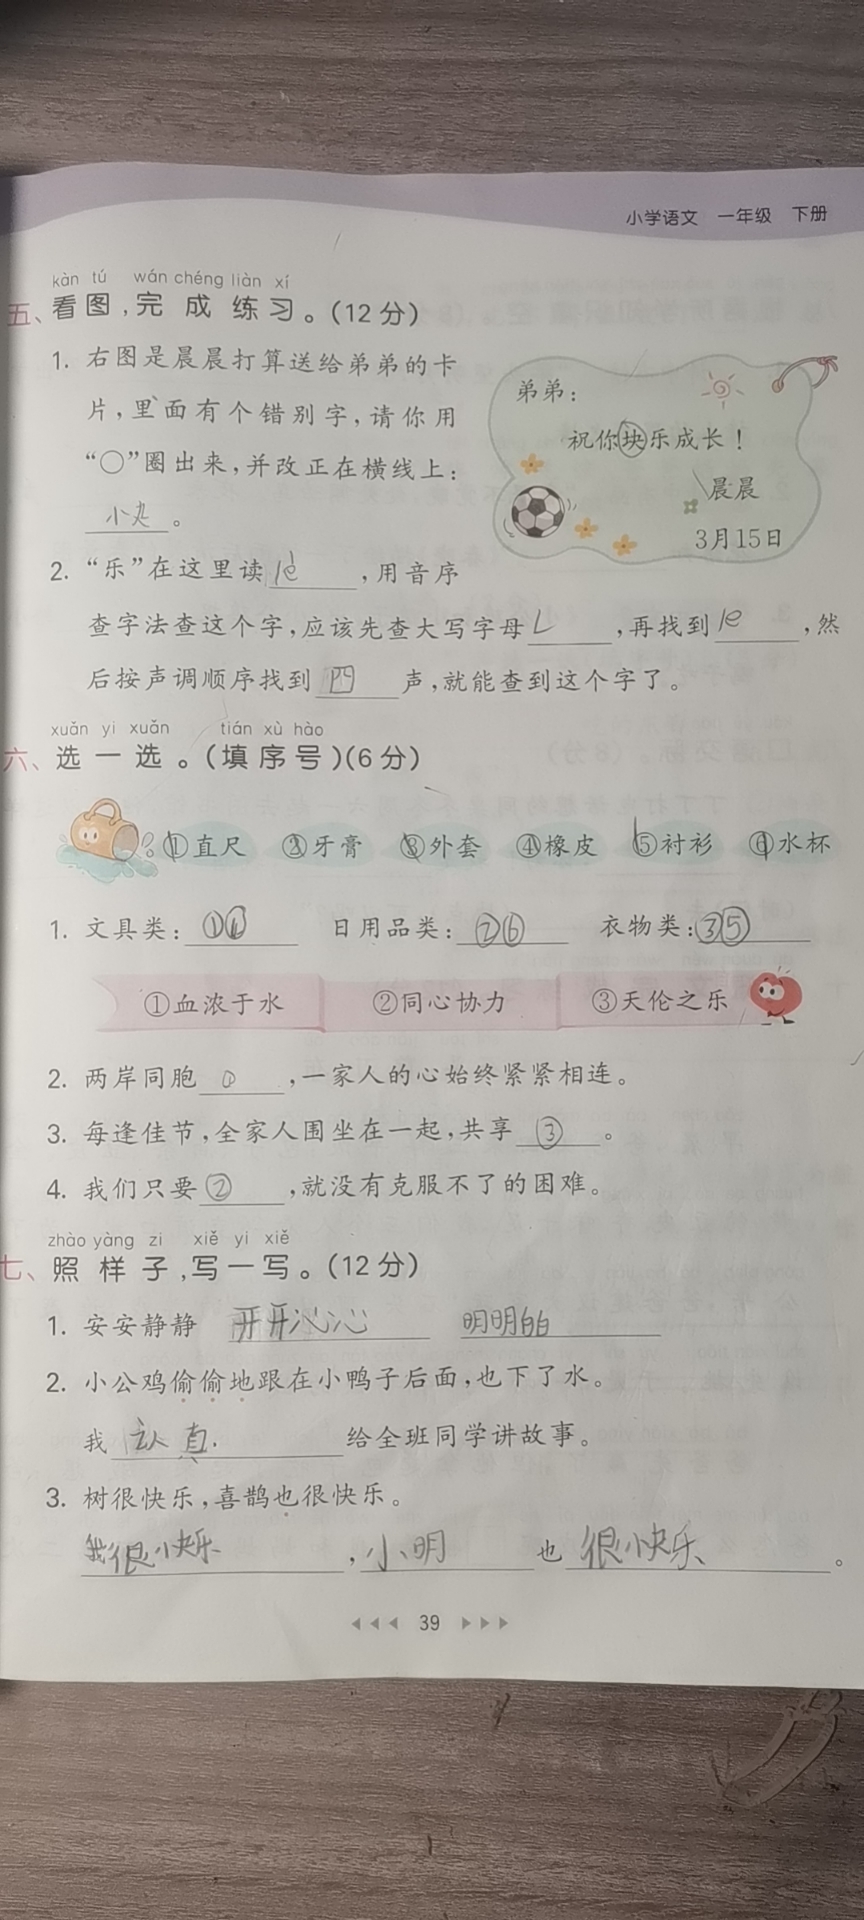 小学语文 一年级 下册
kàn tú wán chéng liàn xí
五、看图,完成练习。(12分)
1. 右图是晨晨打算送给弟弟的卡
片,里面有个错别字,请你用
“○”圈出来,并改正在横线上:
。
弟弟:
祝你块乐成长!
晨晨
3月15日
2. “乐”在这里读 lè ,用音序
查字法查这个字,应该先查大写字母 L ,再找到 le ,然
后按声调顺序找到 四 声,就能查到这个字了。
xuǎn yi xuǎn tián xù hào
六、选一选。(填序号)(6分)
①直尺 ②牙膏 ③外套 ④橡皮 ⑤衬衫 ⑥水杯
1. 文具类: ①④ 日用品类: ②⑥ 衣物类: ③⑤
①血浓于水 ②同心协力 ③天伦之乐
2. 两岸同胞 ① ,一家人的心始终紧紧相连。
3. 每逢佳节,全家人围坐在一起,共享 ③ 。
4. 我们只要 ② ,就没有克服不了的困难。
zhào yàng zi xiě yi xiě
七、照样子,写一写。(12分)
1. 安安静静 开开心心 明明白白
2. 小公鸡偷偷地跟在小鸭子后面,也下了水。
我 认真 给全班同学讲故事。
3. 树很快乐,喜鹊也很快乐。
我很快乐 , 小明 也 很快乐 。
39